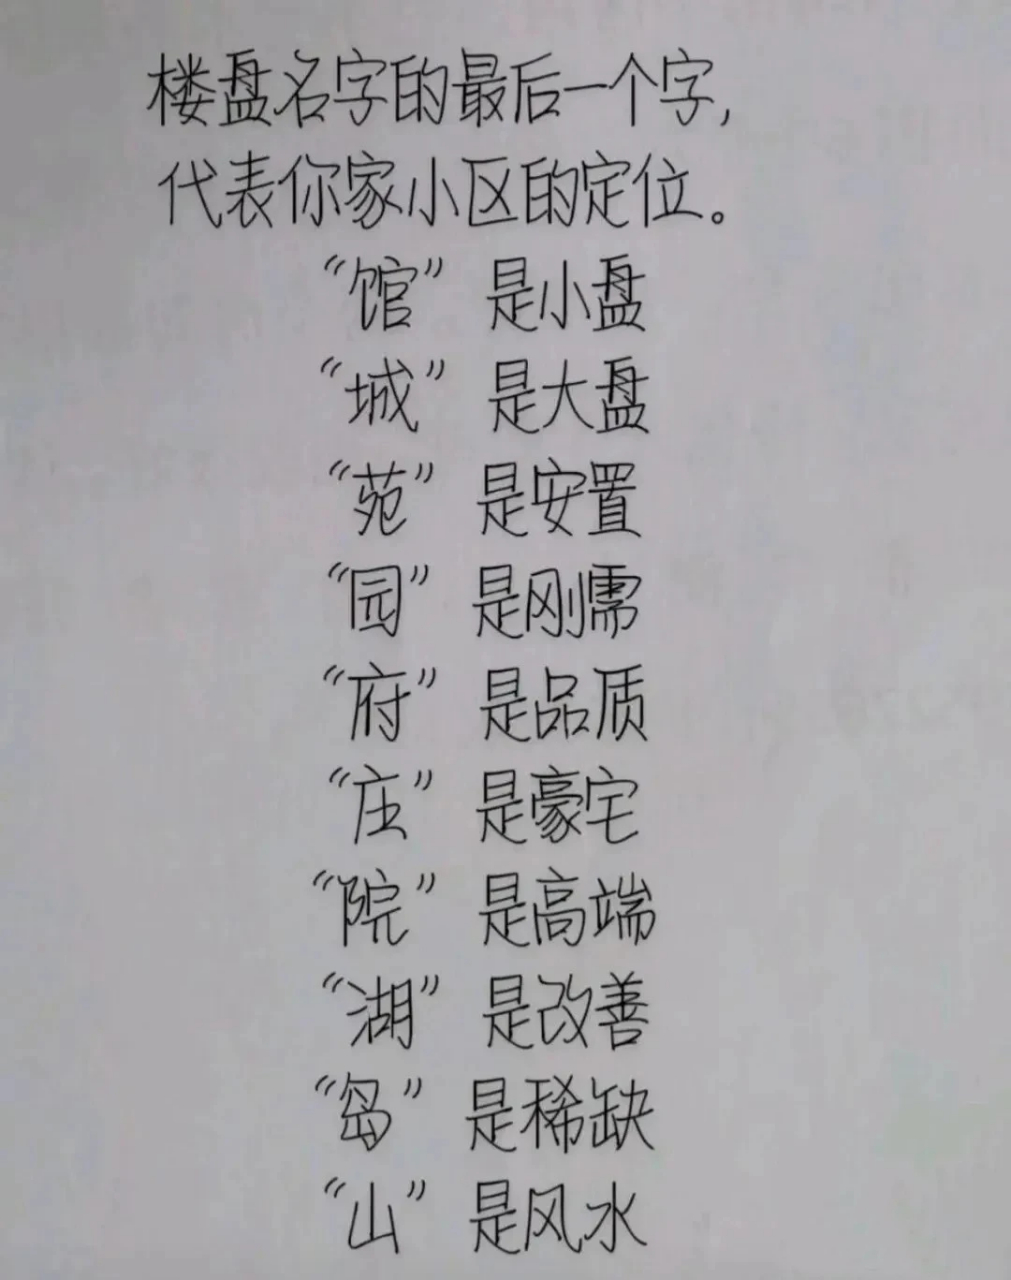 楼盘名字的最后一个字,
代表你家小区的定位。
“馆” 是小盘
“城” 是大盘
“苑” 是安置
“园” 是刚需
“府” 是品质
“庄” 是豪宅
“院” 是高端
“湖” 是改善
“岛” 是稀缺
“山” 是风水